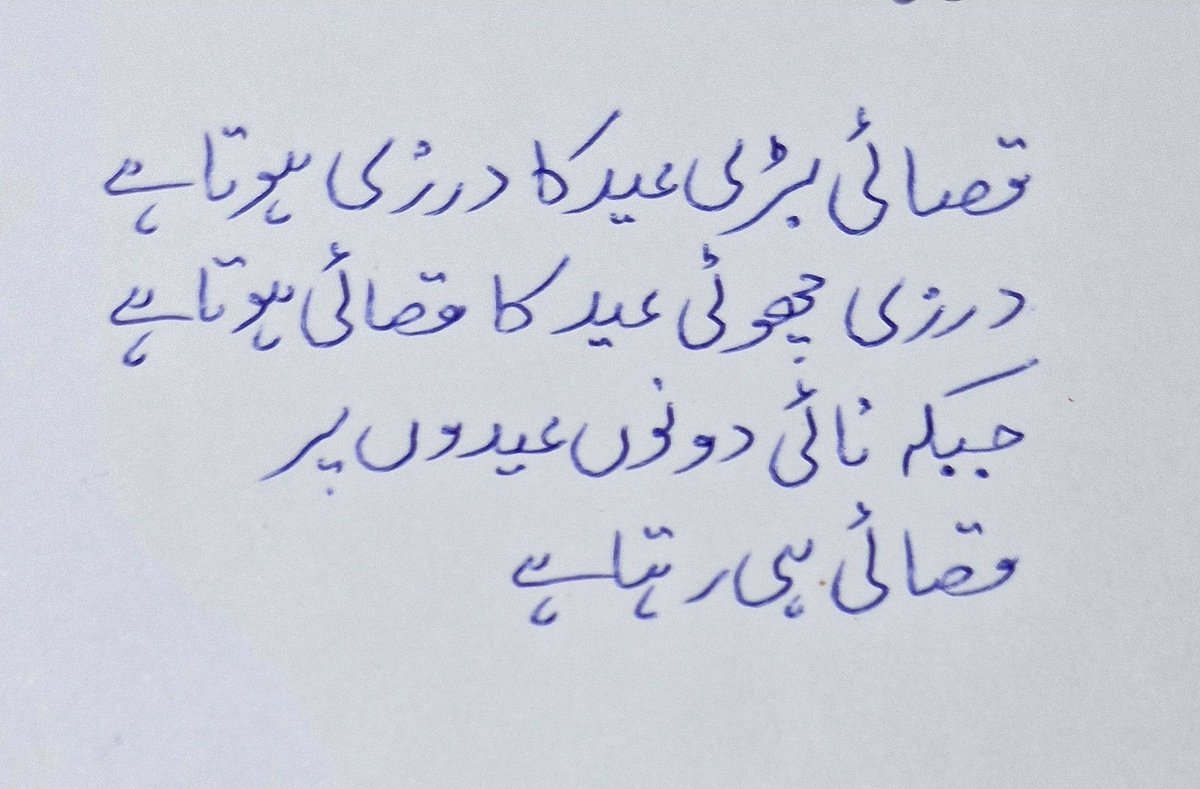 قصائی بڑی عید کا درزی ہوتا ہے
درزی چھوٹی عید کا قصائی ہوتا ہے
جبکہ نائی دونوں عیدوں پر
قصائی ہی رہتا ہے